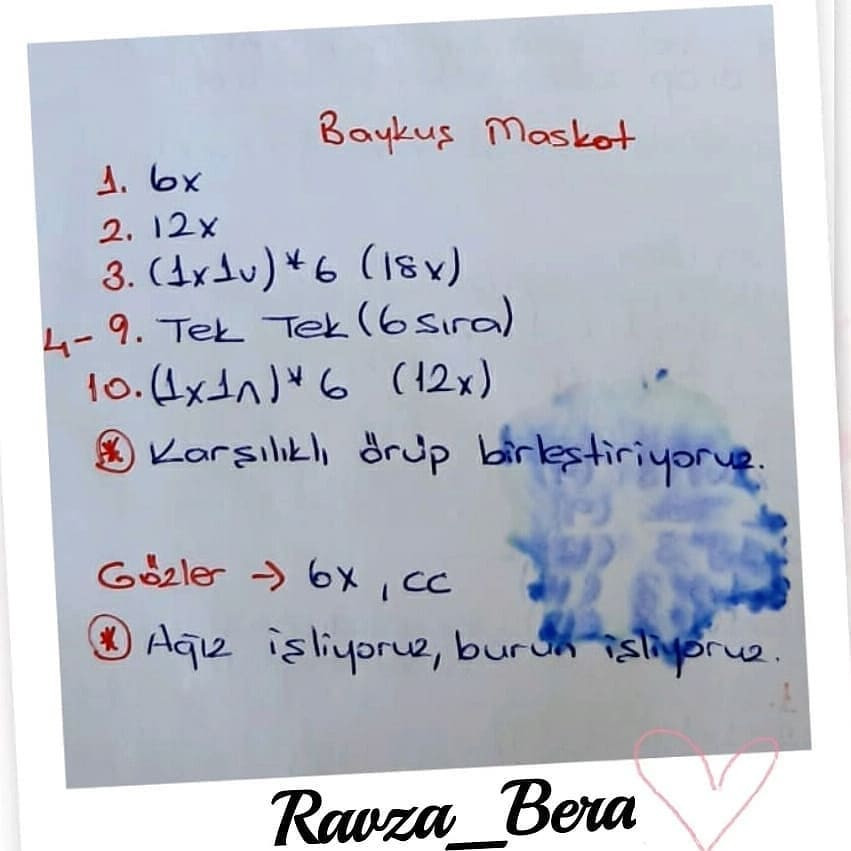 Baykuş Maskot
1. 6x
2. 12x
3. (1x1v)*6 (18x)
4-9. Tek Tek (6 sıra)
10. (1x1n)*6 (12x)
* Karşılıklı örüp birleştiriyoruz.
Gözler → 6x, cc
* Ağız işliyoruz, burun işliyoruz.
Ravza_Bera